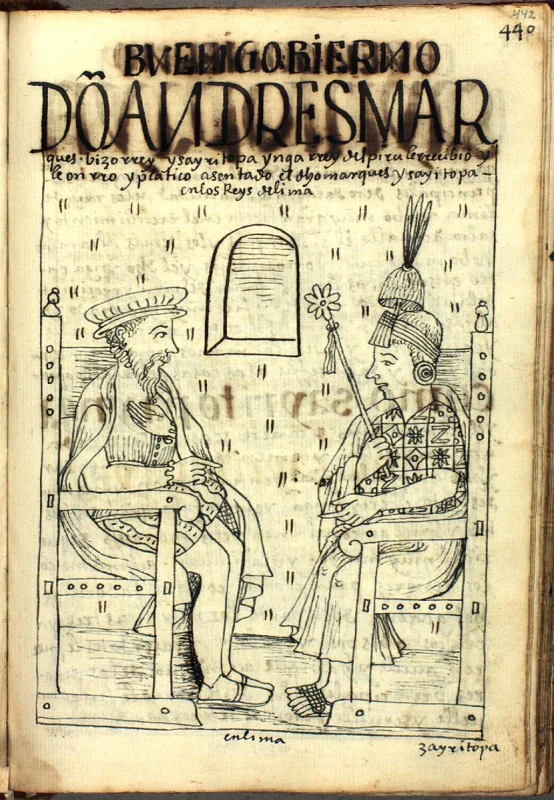 442
440
BVEN GOBIERNO
DÕ ANDRES MAR
ques · bizorrey y sayritopa ynga rrey del piru le rrecibio y
le onrro y platico asentado el dho marques y sayritopa –
en los Reys de lima
en lima
zayritopa